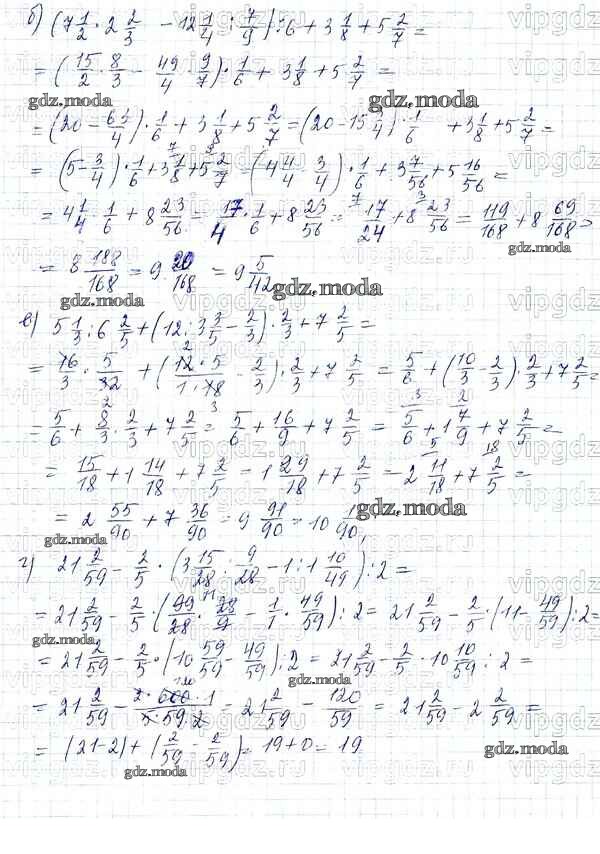 б) (7 1/2 · 2 2/3 - 12 1/4 : 7/9) : 6 + 3 1/8 + 5 2/7 =
= (15/2 · 8/3 - 49/4 · 9/7) · 1/6 + 3 1/8 + 5 2/7 =
= (20 - 63/4) · 1/6 + 3 1/8 + 5 2/7 = (20 - 15 3/4) · 1/6 + 3 1/8 + 5 2/7 =
= (5 - 3/4) · 1/6 + 3 1/8 + 5 2/7 = (4 4/4 - 3/4) · 1/6 + 3 7/56 + 5 16/56 =
= 4 1/4 · 1/6 + 8 23/56 = 17/4 · 1/6 + 8 23/56 = 17/24 + 8 23/56 = 119/168 + 8 69/168 =
= 8 188/168 = 9 20/168 = 9 5/42
в) 5 1/3 : 6 2/5 + (12 : 3 3/5 - 2/3) · 2/3 + 7 2/5 =
= 16/3 · 5/32 + (12 · 5/1 · 18 - 2/3) · 2/3 + 7 2/5 = 5/6 + (10/3 - 2/3) · 2/3 + 7 2/5 =
= 5/6 + 8/3 · 2/3 + 7 2/5 = 5/6 + 16/9 + 7 2/5 = 5/6 + 1 7/9 + 7 2/5 =
= 15/18 + 1 14/18 + 7 2/5 = 1 29/18 + 7 2/5 = 2 11/18 + 7 2/5 =
= 2 55/90 + 7 36/90 = 9 91/90 = 10 1/90,
г) 21 2/59 - 2/5 · (3 15/28 : 9/28 - 1 : 1 10/49) : 2 =
= 21 2/59 - 2/5 · (99/28 · 28/9 - 1/1 · 49/59) : 2 = 21 2/59 - 2/5 · (11 - 49/59) : 2 =
= 21 2/59 - 2/5 · (10 59/59 - 49/59) : 2 = 21 2/59 - 2/5 · 10 10/59 : 2 =
= 21 2/59 - 2 · 600 · 1/5 · 59 · 2 = 21 2/59 - 120/59 = 21 2/59 - 2 2/59 =
= (21 - 2) + (2/59 - 2/59) = 19 + 0 = 19
gdz.moda
vipgdz.ru